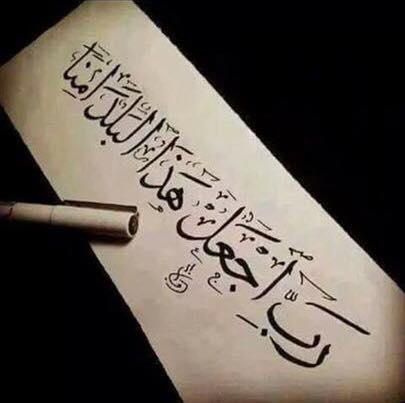 رَبِّ اجْعَلْ هَٰذَا الْبَلَدَ آمِنًا